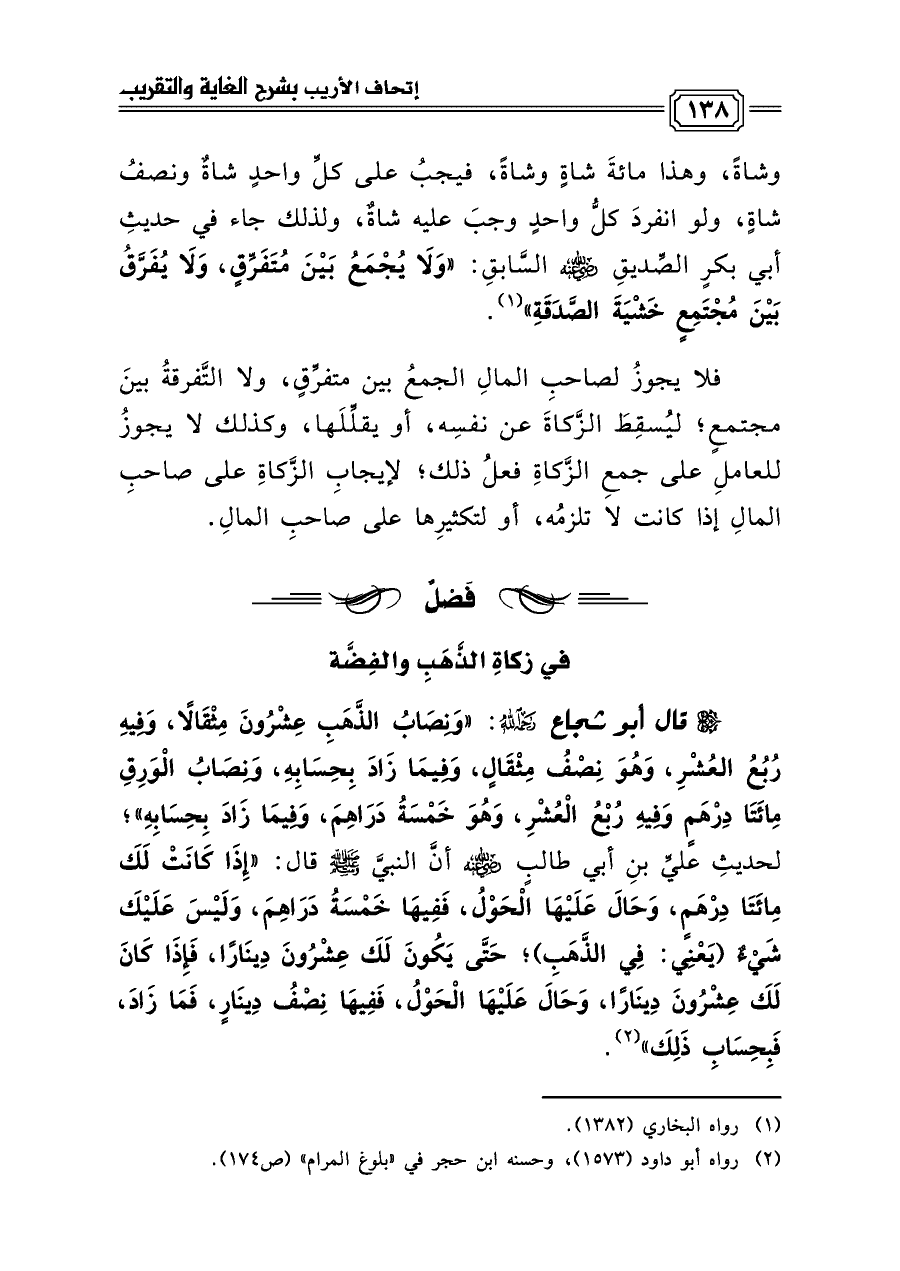 إتحاف الأريب بشرح الغاية والتقريب
١٣٨
وشاةً، وهذا مائةَ شاةٍ وشاةً، فيجبُ على كلِّ واحدٍ شاةٌ ونصفُ
شاةٍ، ولو انفردَ كلُّ واحدٍ وجبَ عليه شاةٌ، ولذلك جاء في حديثِ
أبي بكرٍ الصِّديقِ رضي الله عنه السَّابقِ: «وَلَا يُجْمَعُ بَيْنَ مُتَفَرِّقٍ، وَلَا يُفَرَّقُ
بَيْنَ مُجْتَمِعٍ خَشْيَةَ الصَّدَقَةِ»(١).
فلا يجوزُ لصاحبِ المالِ الجمعُ بين متفرِّقٍ، ولا التَّفرقةُ بينَ
مجتمعٍ؛ ليُسقِطَ الزَّكاةَ عن نفسِه، أو يقلِّلَها، وكذلك لا يجوزُ
للعاملِ على جمعِ الزَّكاةِ فعلُ ذلك؛ لإيجابِ الزَّكاةِ على صاحبِ
المالِ إذا كانت لا تلزمُه، أو لتكثيرِها على صاحبِ المالِ.
فَصْلٌ
في زكاةِ الذَّهَبِ والفِضَّة
قال أبو شجاع رحمه الله: «وَنِصَابُ الذَّهَبِ عِشْرُونَ مِثْقَالًا، وَفِيهِ
رُبُعُ العُشْرِ، وَهُوَ نِصْفُ مِثْقَالٍ، وَفِيمَا زَادَ بِحِسَابِهِ، وَنِصَابُ الْوَرِقِ
مِائَتَا دِرْهَمٍ وَفِيهِ رُبْعُ الْعُشْرِ، وَهُوَ خَمْسَةُ دَرَاهِمَ، وَفِيمَا زَادَ بِحِسَابِهِ»؛
لحديثِ عليِّ بنِ أبي طالبٍ رضي الله عنه أنَّ النبيَّ ﷺ قال: «إِذَا كَانَتْ لَكَ
مِائَتَا دِرْهَمٍ، وَحَالَ عَلَيْهَا الْحَوْلُ، فَفِيهَا خَمْسَةُ دَرَاهِمَ، وَلَيْسَ عَلَيْكَ
شَيْءٌ (يَعْنِي: فِي الذَّهَبِ)؛ حَتَّى يَكُونَ لَكَ عِشْرُونَ دِينَارًا، فَإِذَا كَانَ
لَكَ عِشْرُونَ دِينَارًا، وَحَالَ عَلَيْهَا الْحَوْلُ، فَفِيهَا نِصْفُ دِينَارٍ، فَمَا زَادَ،
فَبِحِسَابِ ذَلِكَ»(٢).
(١) رواه البخاري (١٣٨٢).
(٢) رواه أبو داود (١٥٧٣)، وحسنه ابن حجر في «بلوغ المرام» (ص١٧٤).